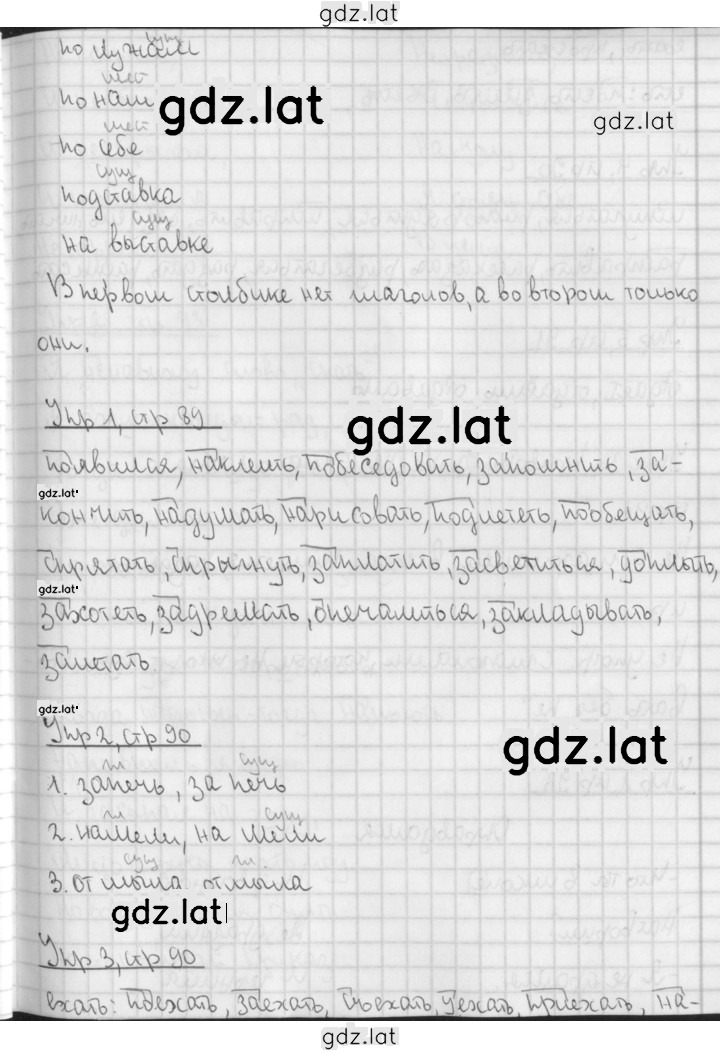 gdz.lat
сущ
по лужам
мест
по нам
gdz.lat
gdz.lat
мест
по себе
сущ
подставка
сущ
на выставке
В первом столбике нет глаголов, а во втором только
они.
Упр 1, стр 89
gdz.lat
появился, наклеить, побеседовать, запомнить, за-
gdz.lat
кончить, надумать, нарисовать, подмететь, пообещать,
спрятать, спрыгнуть, заплатить, засветиться, доплыть,
gdz.lat
захотеть, задремать, опечалиться, закладывать,
заметать.
gdz.lat
Упр 2, стр 90
gdz.lat
гл сущ
1. запечь, за печь
гл сущ
2. намели, на мели
сущ гл.
3. от мыла отмыла
gdz.lat
Упр 3, стр 90
ехать: поехать, заехать, съехать, уехать, приехать, на-
gdz.lat